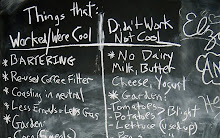 Things that:
Worked/Were Cool
* BARTERING
* Re-used Coffee Filter
* Coasting in neutral
* Less Errands = Less Gas
* Garden
Didn't Work
Not Cool
* No Dairy
Milk, Butter,
Cheese, Yogurt
* Garden:
Tomatoes
Potatoes > Blight
- Lettuce (used up)